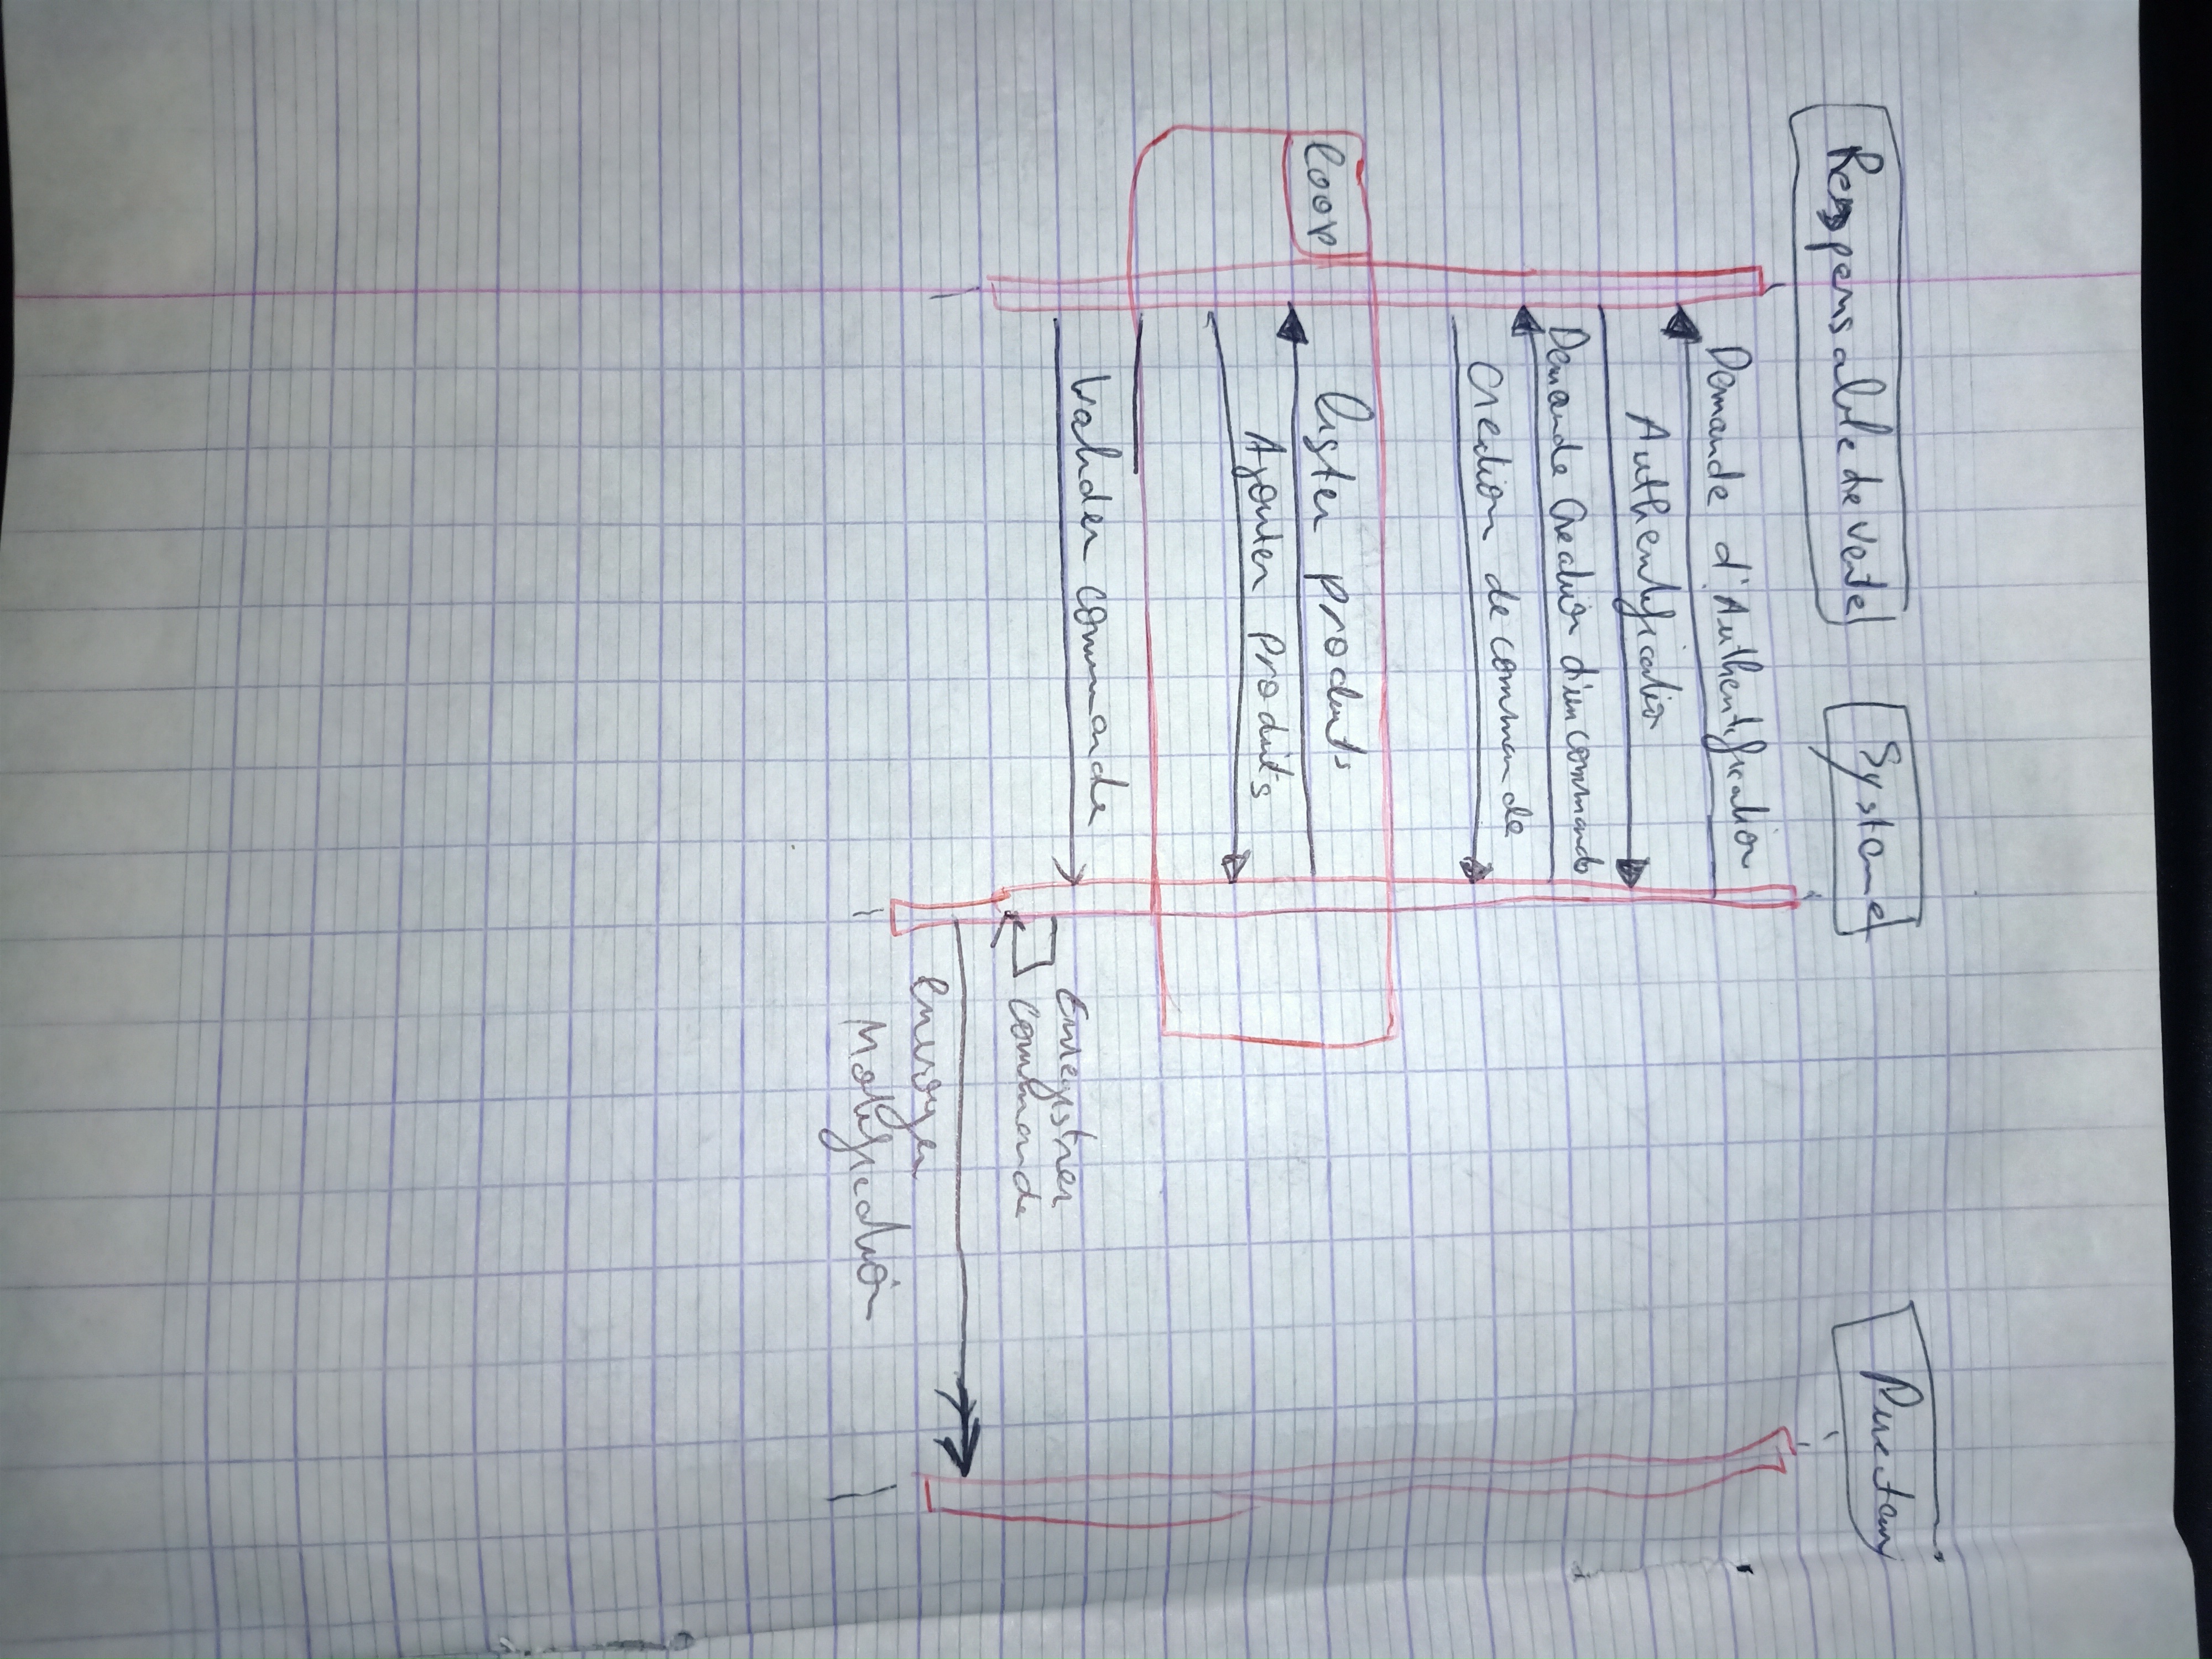 Responsable de vente
Systeme
Directeur
Demande d'Authentification
Authentification
Demande Creation d'un commande
Creation de commande
loop
lister produits
Ajouter produits
Valider commande
Enregistrer
Commande
envoyer